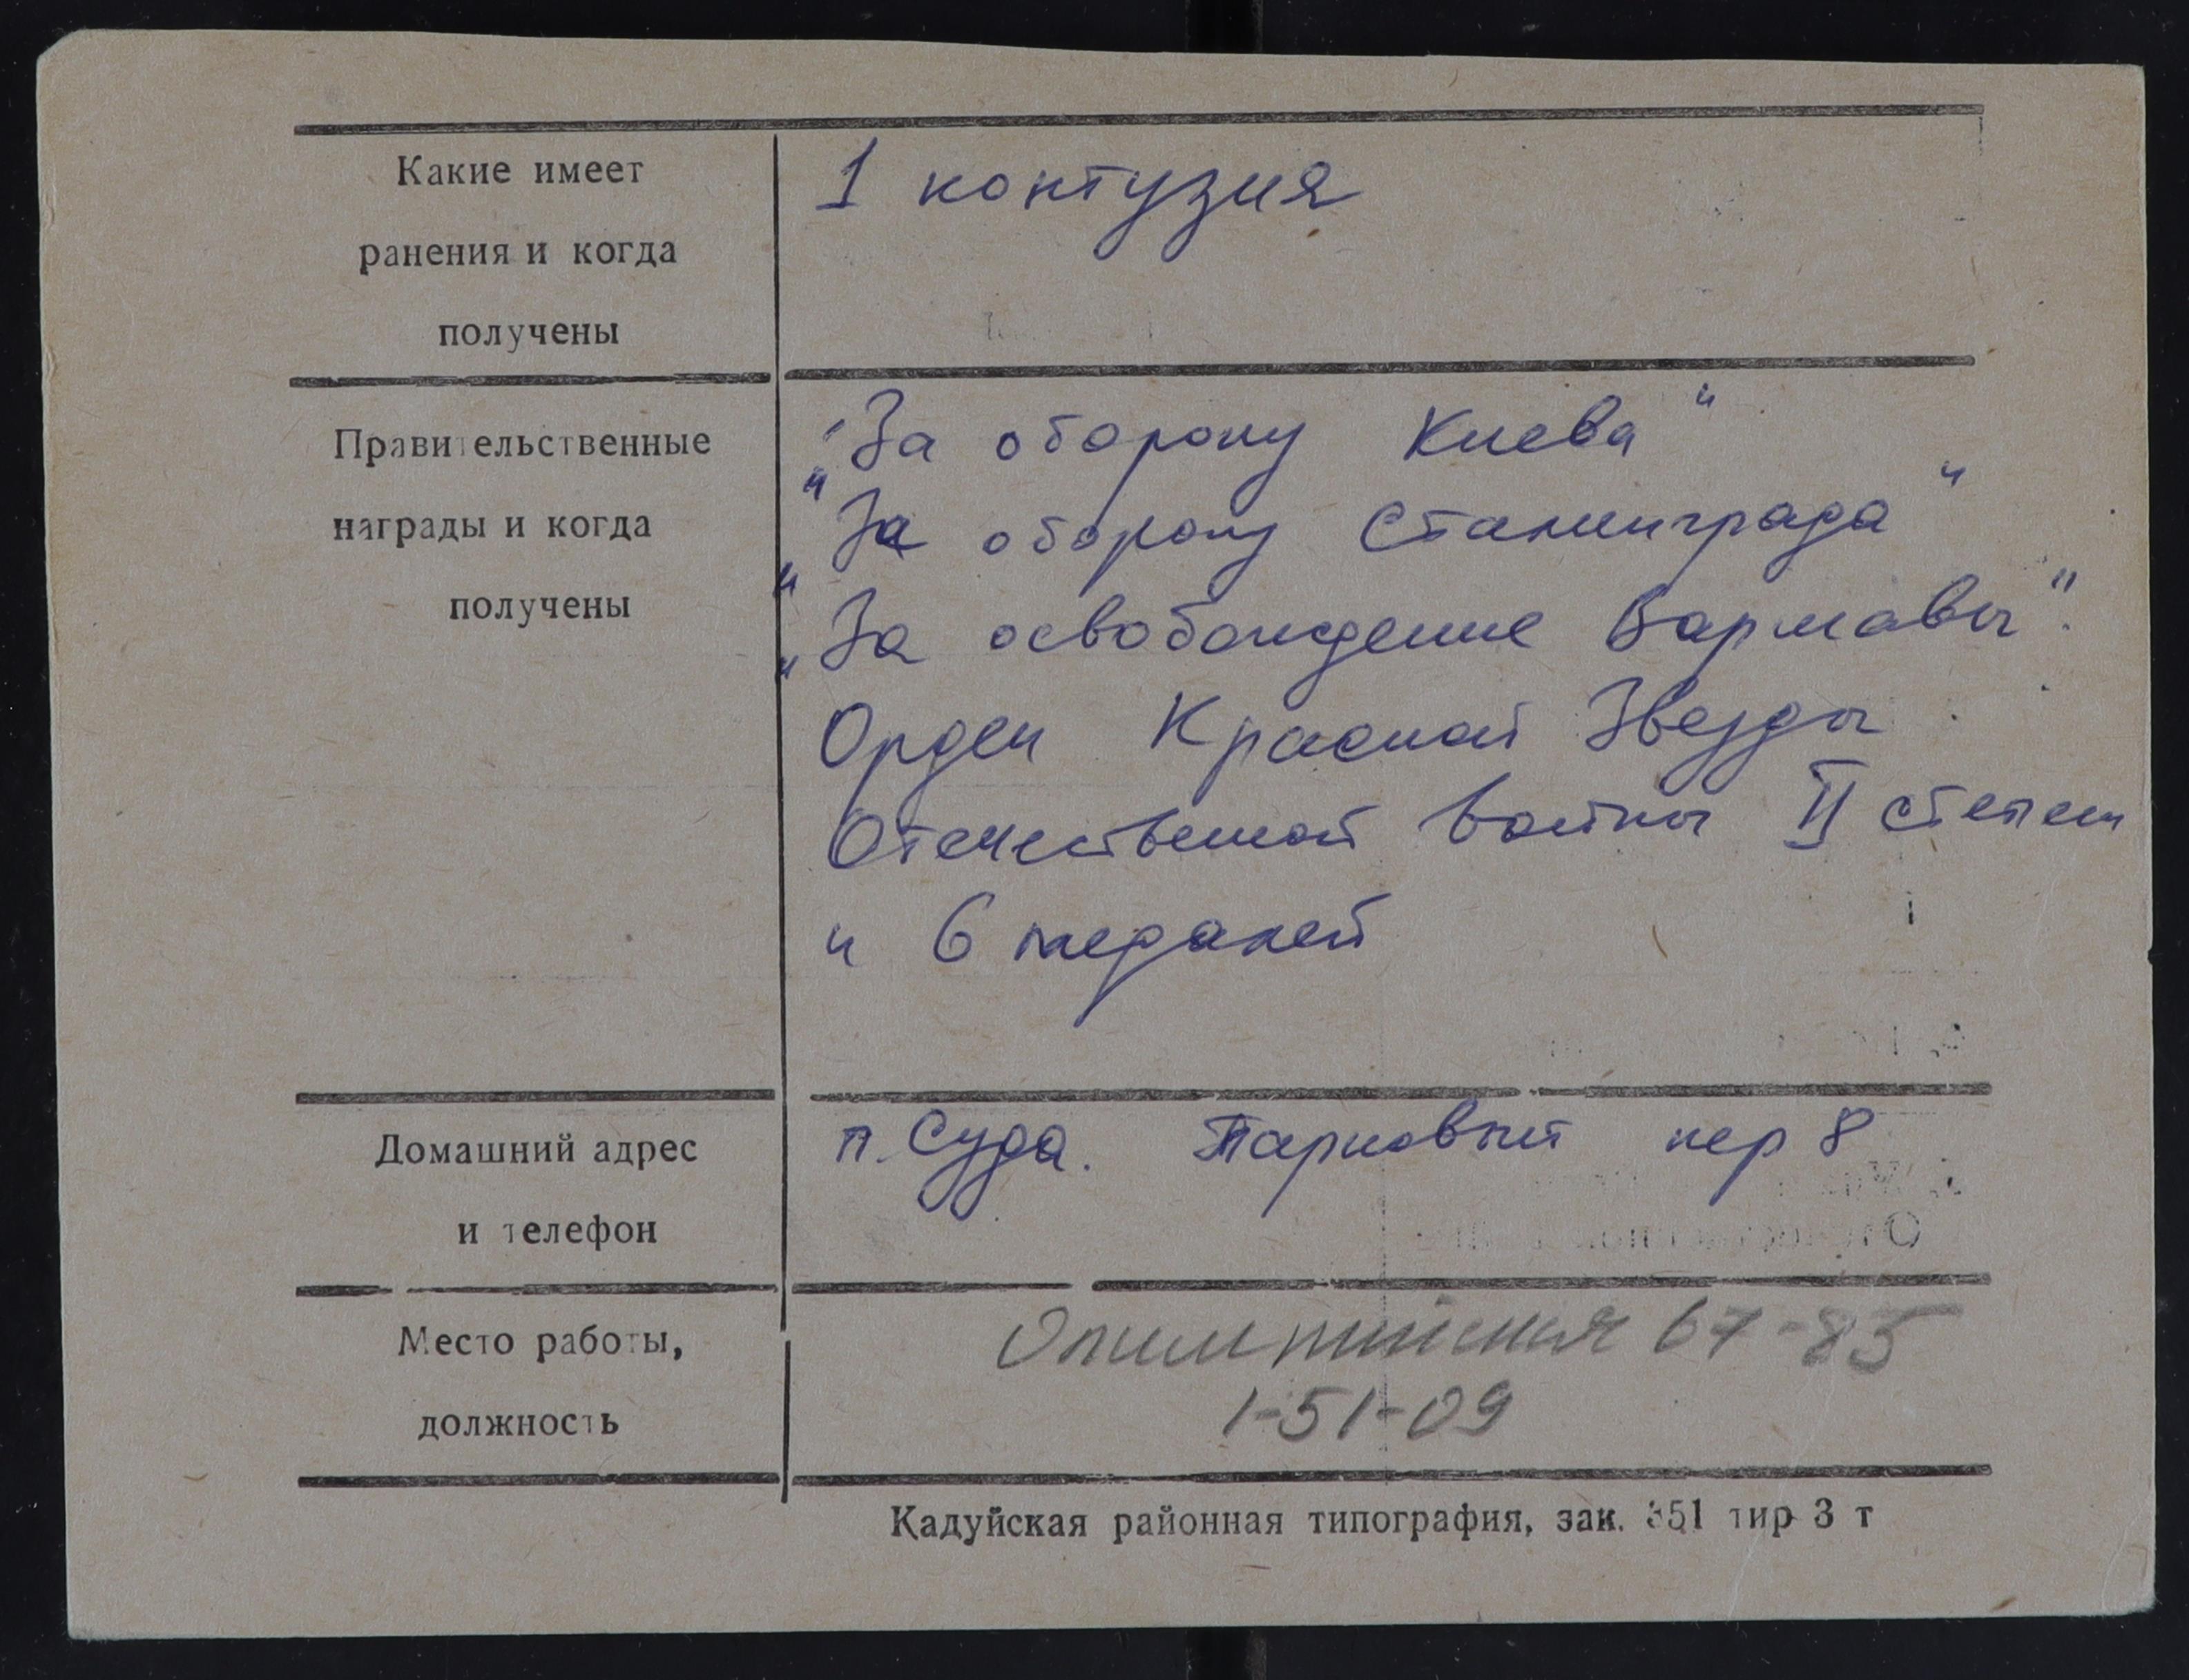 Какие имеет
ранения и когда
получены
1 контузия
Правительственные
награды и когда
получены
"За оборону Киева"
"За оборону Сталинграда"
"За освобождение Варшавы".
Орден Красной Звезды
Отечественной войны II степени
и 6 медалей
Домашний адрес
и телефон
п. Суда. Парковый пер 8
Место работы,
должность
Олимпийская 67-85
1-51-09
Кадуйская районная типография, зак. 351 тир 3 т